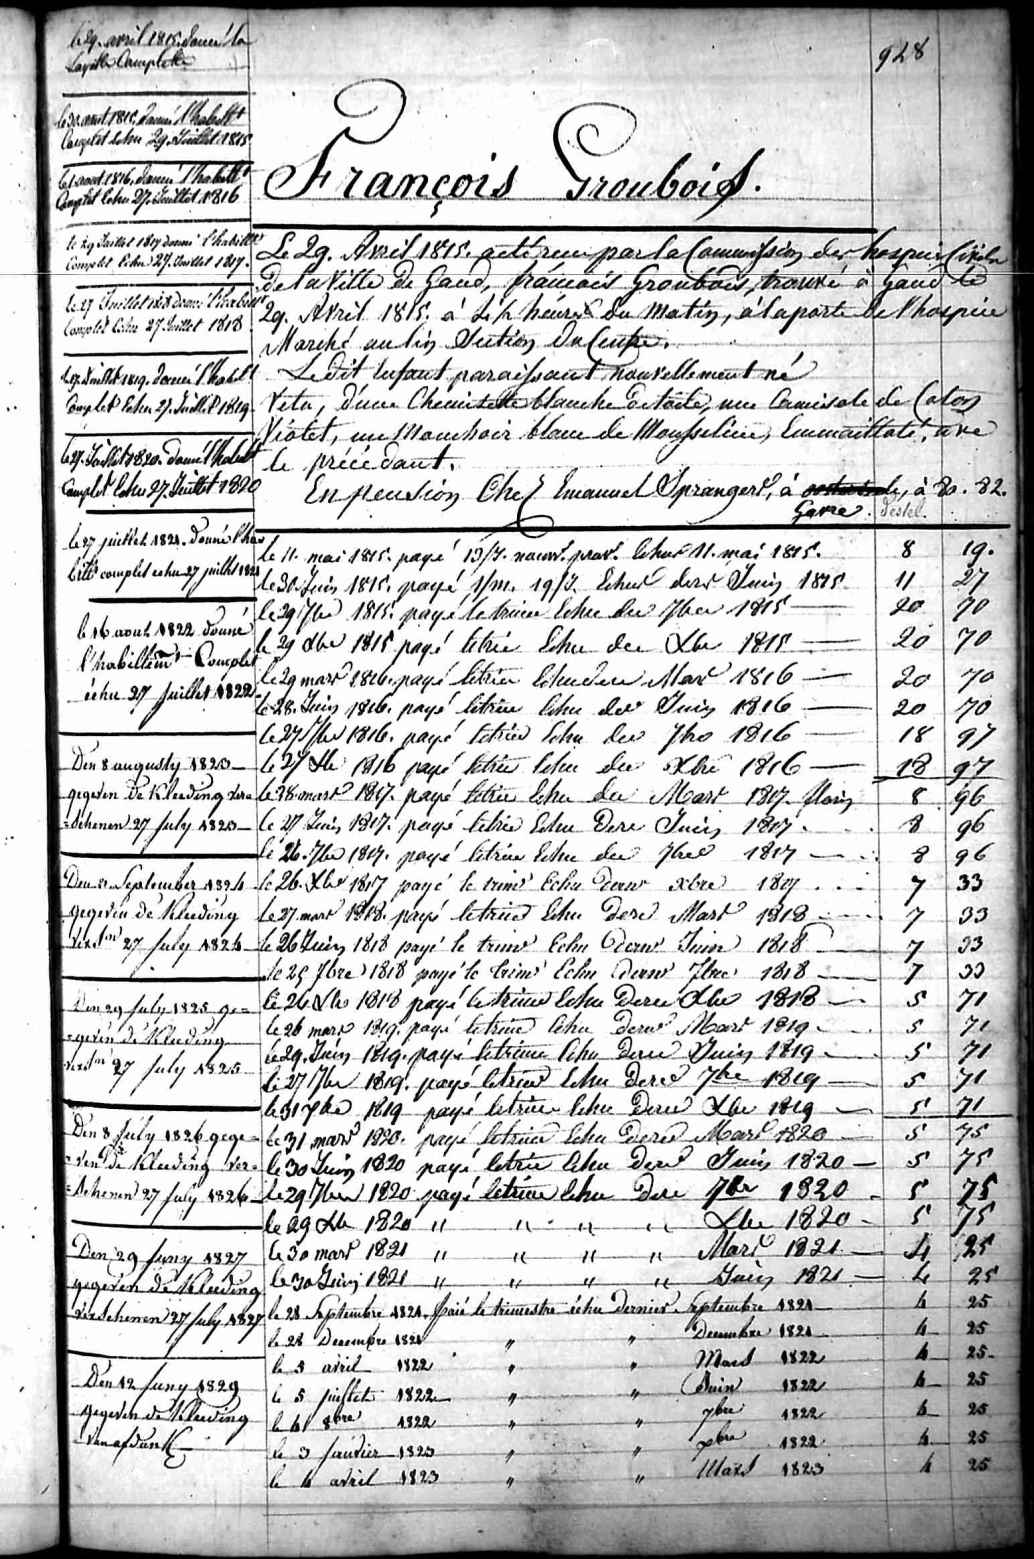 928
François Groubois.
Le 29. Avril 1815. a été reçu par la Commission des hospices Civils
de la Ville de Gand, françois Groubois, trouvé à Gand le
29. Avril 1815. à heures du matin, à la porte de l'hospice
Marché au lin Section Du Centre.
Ledit Enfant paraissant nouvellement né
Vetu, d'une Chemisette blanche de toile, une Camisole de Coton
Violet, un Mouchoir blanc de Mousseline, Emmailloté, avec
le précédant.
En pension Chez Emanuel Sprangers, à Gavre, à 80. 82.
le 29. avril 1815. donné la
Layette Complette
le 30. aout. 1815. donné l'habillt
Complet Echu 29. Juillet 1815
le 1 aout 1816. donné l'habillt
Complet Echu 27. Juillet 1816
le 29 Juillet 1817 donné l'habillt
Complet Echu 27. Juillet 1817.
le 27 Juillet 1818 donné l'habillt
Complet Echu 27 Juillet 1818
le 27. Juillet 1819. donné l'habillt
Complet Echu 27. Juillet 1819
le 27. Juillet 1820. donné l'habillt
Complet Echu 27. Juillet 1820
le 27 juillet 1821. donné l'ha
complet echu 27 juillet 1821
le 16 aout 1822 donné
l'habillemt Complet
échu 27 juillet 1822
Den 8 augusty 1823
gegeven de Kleeding ver=
=schenen 27 july 1823
Den September 1824
gegeven de Kleeding
27 july 1824
Den 29 july 1825 ge=
=geven de Kleeding
27 july 1825
Den 8 july 1826 gege=
=ven de Kleeding ver=
=schenen 27 july 1826
Den 29 juny 1827
gegeven de Kleeding
verschenen 27 july 1827
Den 12 juny 1829
gegeven de Kleeding
le 11. mai 1815. payé 13/J. nourr. Echus 11. mai 1815. 8 19.
le 30. Juin 1815. payé 1/m. 19/J. Echus der Juin 1815 11 27
le 29 7bre 1815. payé le trim Echu der 7bre 1815 20 70
le 29 Xbre 1815 payé le trim Echu der Xbre 1815 20 70
le 29 mars 1816. payé le trim Echu der Mars 1816 20 70
le 28. Juin 1816. payé le trim Echu der Juin 1816 20 70
le 27 7bre 1816. payé le trim Echu der 7bre 1816 18 97
le 27 Xbre 1816 payé le trim Echu der Xbre 1816 18 97
le 28 mars 1817. payé le trim Echu der Mars 1817. florins 8 96
le 27 Juin 1817. payé le trim Echu der Juin 1817. 8 96
le 26. 7bre 1817. payé le trim Echu der 7bre 1817 8 96
le 26. Xbre 1817 payé le trim Echu der xbre 1817 7 33
le 27. mars 1818. payé le trim Echu der Mars 1818 7 33
le 26 Juin 1818 payé le trim Echu der Juin 1818 7 33
le 25 7bre 1818 payé le trim Echu der 7bre 1818 7 33
le 24 Xbre 1818 payé le trim Echu der Xbre 1818 5 71
le 26 mars 1819. payé le trim Echu der Mars 1819 5 71
le 29. Juin 1819. payé le trim Echu der Juin 1819 5 71
le 27 7bre 1819. payé le trim Echu der 7bre 1819 5 71
le 31 1819 payé le trim Echu der Xbre 1819 5 71
le 31 mars 1820. payé le trim Echu der Mars 1820 5 75
le 30 Juin 1820 payé le trim Echu der Juin 1820 5 75
le 29 7bre 1820 payé le trim Echu der 7bre 1820 5 75
le 29 Xbre 1820 " " " " Xbre 1820 5 75
le 30 mars 1821 " " " " Mars 1821 4 25
le 30 Juin 1821 " " " " Juin 1821 4 25
le 28 Septembre 1821. Paié le trimestre échu dernier Septembre 1821 4 25
le 28 Decembre 1821 " " Decembre 1821 4 25
le 5 avril 1822 " " Mars 1822 4 25
le 5 juillet 1822 " " Juin 1822 4 25
le 4 8bre 1822 " " 7bre 1822 4 25
le 3 janvier 1823 " " xbre 1822 4 25
le 4 avril 1823 " " Mars 1823 4 25